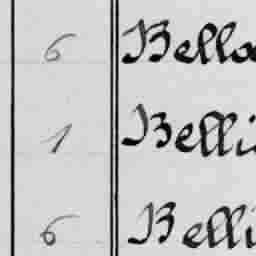 6 Bella
1 Belli
6 Belli